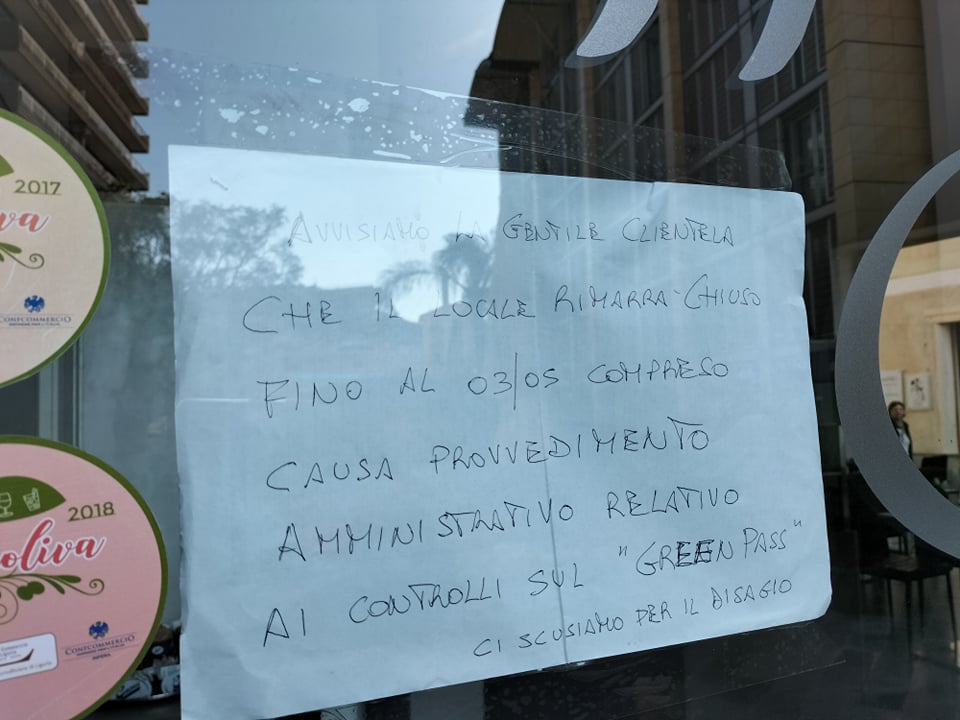 AVVISIAMO LA GENTILE CLIENTELA
CHE IL LOCALE RIMARRA' CHIUSO
FINO AL 03/05 COMPRESO
CAUSA PROVVEDIMENTO
AMMINISTRATIVO RELATIVO
AI CONTROLLI SUL "GREEN PASS"
CI SCUSIAMO PER IL DISAGIO
2017
va
CONFCOMMERCIO
IMPRESE PER L'ITALIA
2018
oliva
CONFCOMMERCIO
IMPERIA